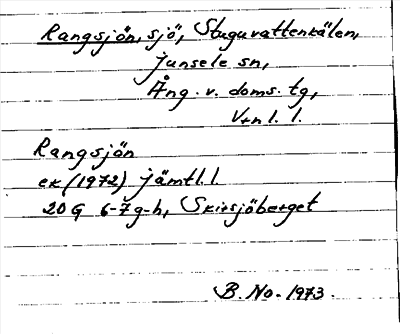 Rangsjön, sjö, Stuguvattenkälen,
Junsele sn,
Ång. v. doms. tg,
V-rnl. l.
Rangsjön
ek (1972) jämtl. l.
20 G 6-7 g-h, Skirsjöberget
B. No. 1973.